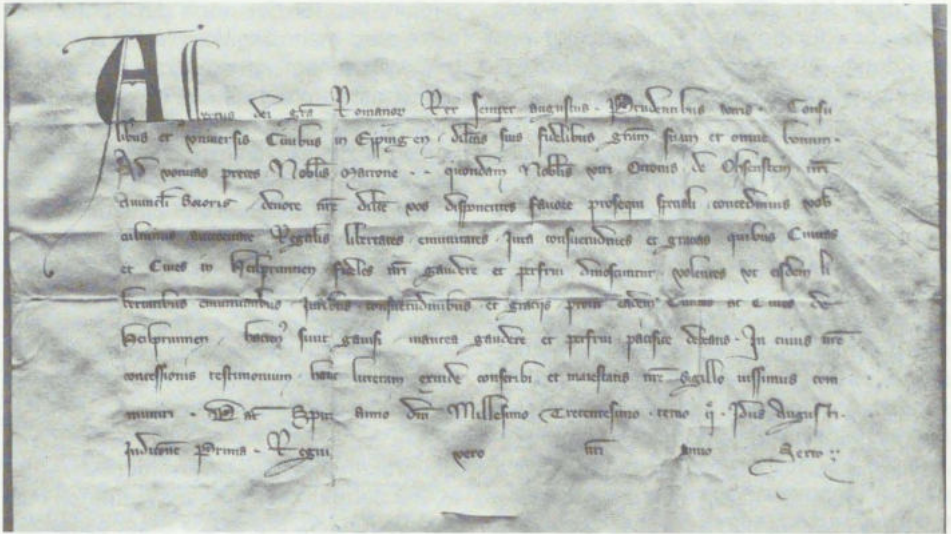 Albertus dei gra Romanor Rex semper augustus. Prudentibus viris. Consu
libus et vniuersis Ciuibus in Eppingen, dilcis suis fidelibus gram suam et omne bonum.
Ad votiuas preces Nobilis matrone .. quondam Nobilis viri Ottonis de Ohsenstein nri
auunculi Sororis deuote nre dilce vos disponentes fauore prosequi speciali, concedimus vob
culminis auctoritate Regalis libertates emunitates Iura consuetudines et gratias quibus Ciuitas
et Ciues in Heilprunnen fideles nri gaudere et perfrui dinoscuntur. volentes vt eisdem li
bertatibus emunitatibus Iuribus consuetudinibus et gratijs prout eadem Ciuitas ac Ciues de
Heilprunnen, hacten9 sunt gauisi, inantea gaudere et perfrui pacifice debeatis. In cuius nre
concessionis testimonium, hanc litteram exinde conscribi, et maiestatis nre Sigillo iussimus com
muniri. Dat Spir anno dni Millesimo Trecentesimo tertio Idus Augusti.
Indictione Prima. Regni vero nri anno Sexto